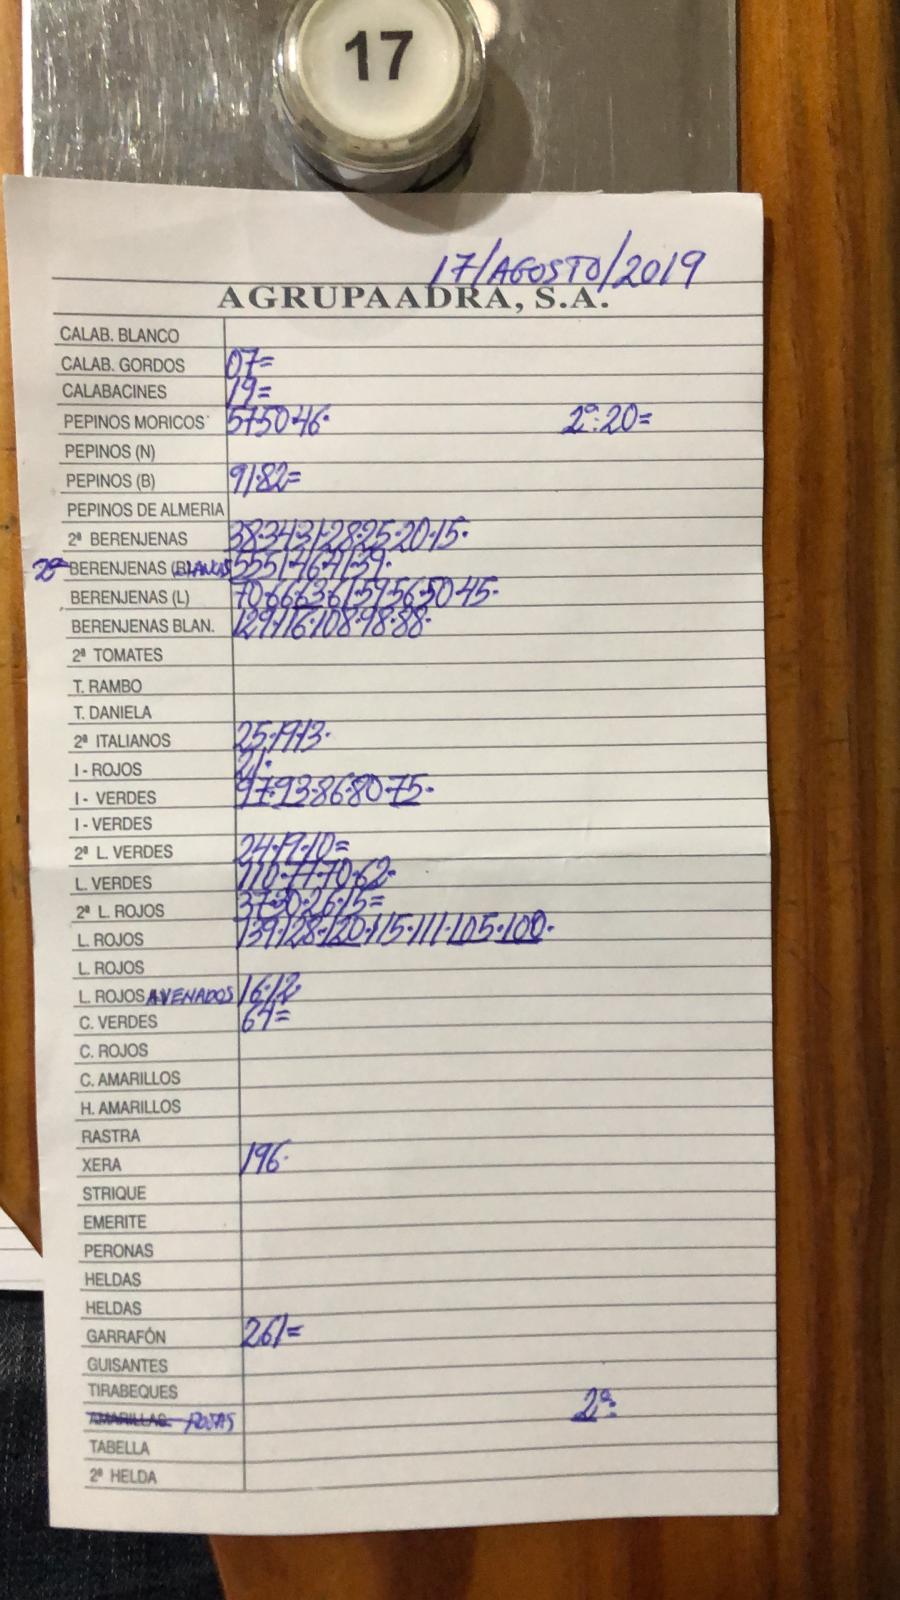 17
17/AGOSTO/2019
AGRUPAADRA, S.A.
CALAB. BLANCO
CALAB. GORDOS 07=
CALABACINES 19=
PEPINOS MORICOS 57·50·46· 2ª:20=
PEPINOS (N)
PEPINOS (B) 91·82=
PEPINOS DE ALMERIA
2ª BERENJENAS 38·34·31·28·25·20·15·
2ª BERENJENAS (BLANCAS 55·51·46·41·39·
BERENJENAS (L) 70·66·63·61·59·56·50·45·
BERENJENAS BLAN. 129·116·108·98·88·
2ª TOMATES
T. RAMBO
T. DANIELA
2ª ITALIANOS 25·19·13·
I - ROJOS 21·
I - VERDES 97·93·86·80·75·
I - VERDES
2ª L. VERDES 24·19·10=
L. VERDES 110·77·70·62·
2ª L. ROJOS 37·30·26·15=
L. ROJOS 139·128·120·115·111·105·100·
L. ROJOS
L. ROJOS AVENADOS 16·12
C. VERDES 64=
C. ROJOS
C. AMARILLOS
H. AMARILLOS
RASTRA
XERA 196·
STRIQUE
EMERITE
PERONAS
HELDAS
HELDAS
GARRAFÓN 261=
GUISANTES
TIRABEQUES
AMARILLAS ROJAS 2ª:
TABELLA
2ª HELDA